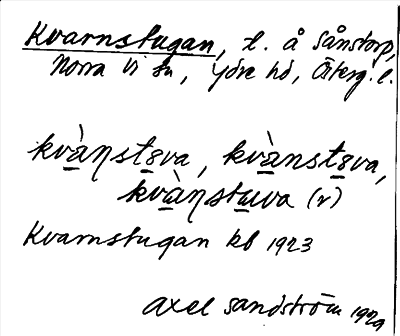 Kvarnstugan, t. å Sånstorp,
Norra Vi sn, Ydre hd, Österg. l.
kvànstȣva, kvànstȣva,
kvànstuva (r)
Kvarnstugan kb 1923
Axel Sandström 1929